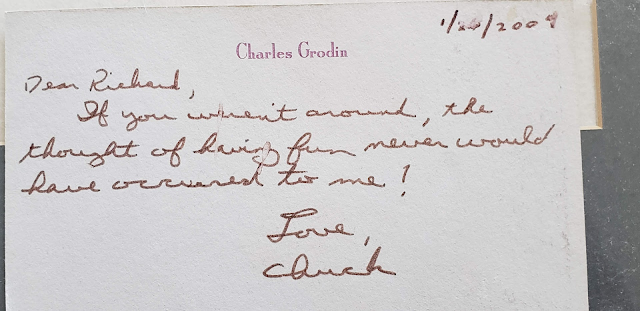 1/26/2009
Charles Grodin
Dear Richard,
If you weren't around, the
thought of having fun never would
have occured to me!
Love,
Chuck